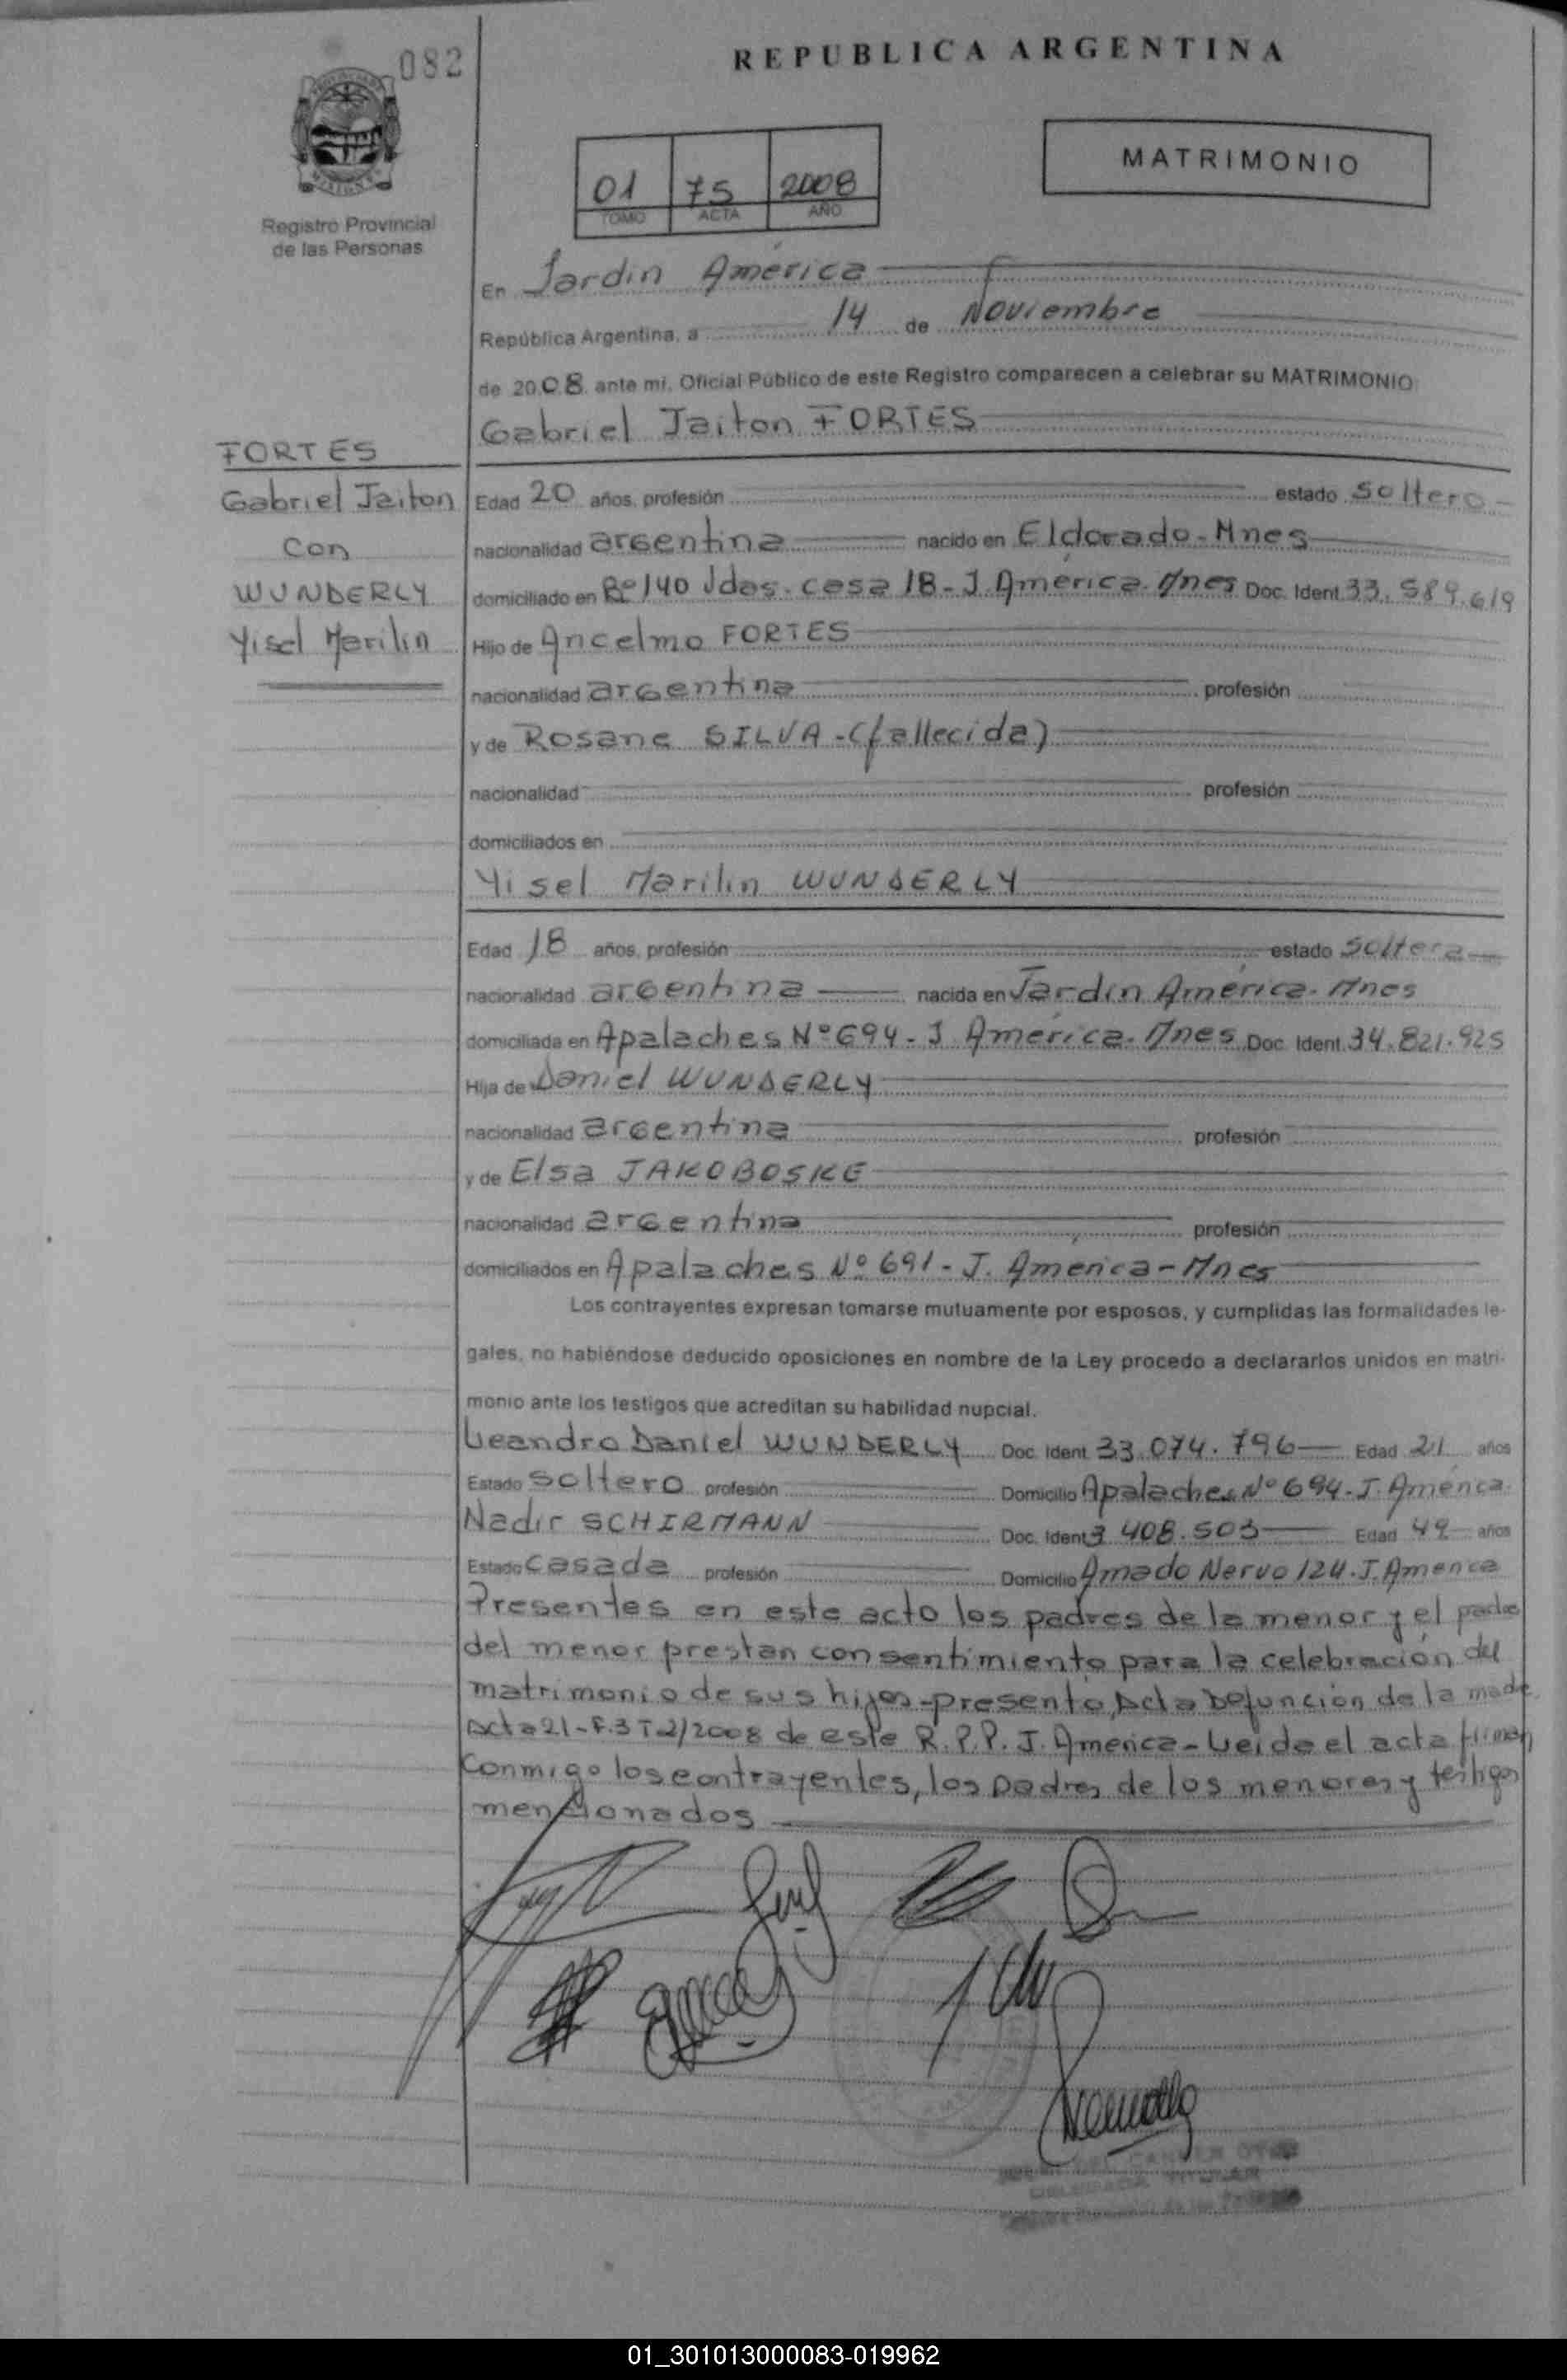 082
REPUBLICA ARGENTINA
MATRIMONIO
01 75 2008
TOMO ACTA AÑO
Registro Provincial
de las Personas
En Jardín América
República Argentina, a 14 de Noviembre
de 2008 ante mi, Oficial Público de este Registro comparecen a celebrar su MATRIMONIO
Gabriel Jaiton FORTES
FORTES
Gabriel Jaiton
con
WUNDERLY
Yisel Marilin
Edad 20 años, profesión estado soltero
nacionalidad argentina nacido en Eldorado-Mnes
domiciliado en Bº 140 Vdas. casa 18-J.América.Mnes Doc. Ident. 33.589.619
Hijo de Ancelmo FORTES
nacionalidad argentina profesión
y de Rosane SILVA-(fallecida)
nacionalidad profesión
domiciliados en
Yisel Marilin WUNDERLY
Edad 18 años, profesión estado soltera
nacionalidad argentina nacida en Jardín América-Mnes
domiciliada en Apalaches Nº 694-J América-Mnes Doc. Ident. 34.821.925
Hija de Daniel WUNDERLY
nacionalidad argentina profesión
y de Elsa JAKOBOSKE
nacionalidad argentina profesión
domiciliados en Apalaches Nº 691-J. América-Mnes
Los contrayentes expresan tomarse mutuamente por esposos, y cumplidas las formalidades le-
gales, no habiéndose deducido oposiciones en nombre de la Ley procedo a declararlos unidos en matri-
monio ante los testigos que acreditan su habilidad nupcial.
Leandro Daniel WUNDERLY Doc. Ident. 33.074.796 Edad 21 años
Estado soltero profesión Domicilio Apalaches Nº 694-J.América.
Nadir SCHIRMANN Doc. Ident. 3 408.503 Edad 49 años
Estado casada profesión Domicilio Amado Nervo 124.J.America
Presentes en este acto los padres de la menor y el padre
del menor prestan consentimiento para la celebración del
matrimonio de sus hijos-presento Acta Defunción de la madre
Acta 21-F.3 T.2/2008 de este R.P.P. J. America-Leida el acta firman
conmigo los contrayentes, los padres de los menores y testigos
mencionados
01_301013000083-019962